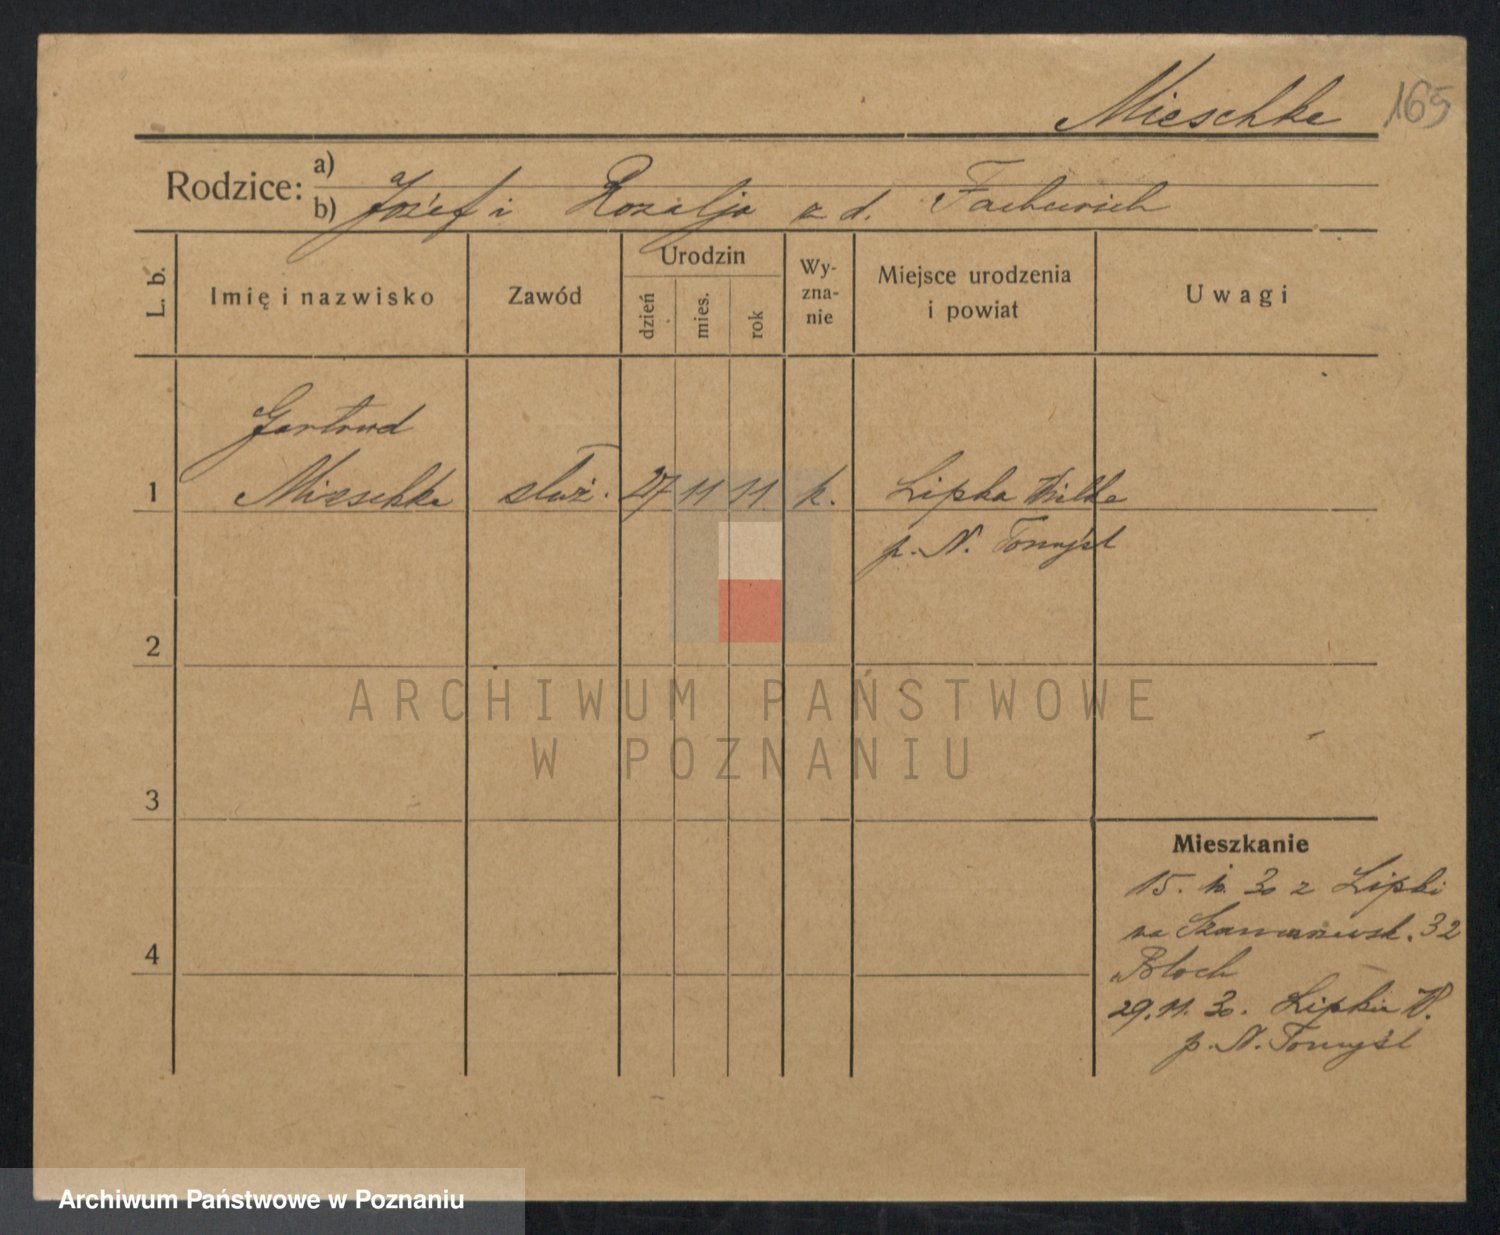 Mieschke 165
Rodzice: a)
b) Józef i Rozalja z d.
L. b.
Imię i nazwisko
Zawód
Urodzin
dzień
mies.
rok
Wy-
zna-
nie
Miejsce urodzenia
i powiat
Uwagi
Gertrud
1 Mieschke służ. 27 11 11. k. Lipka Wielka
p. N. Tomyśl
2
3
4
Mieszkanie
15. 30 z Lipki
na 32
Bloch
29. 11. 30. Lipka W.
p. N. Tomyśl
ARCHIWUM PAŃSTWOWE
W POZNANIU
Archiwum Państwowe w Poznaniu